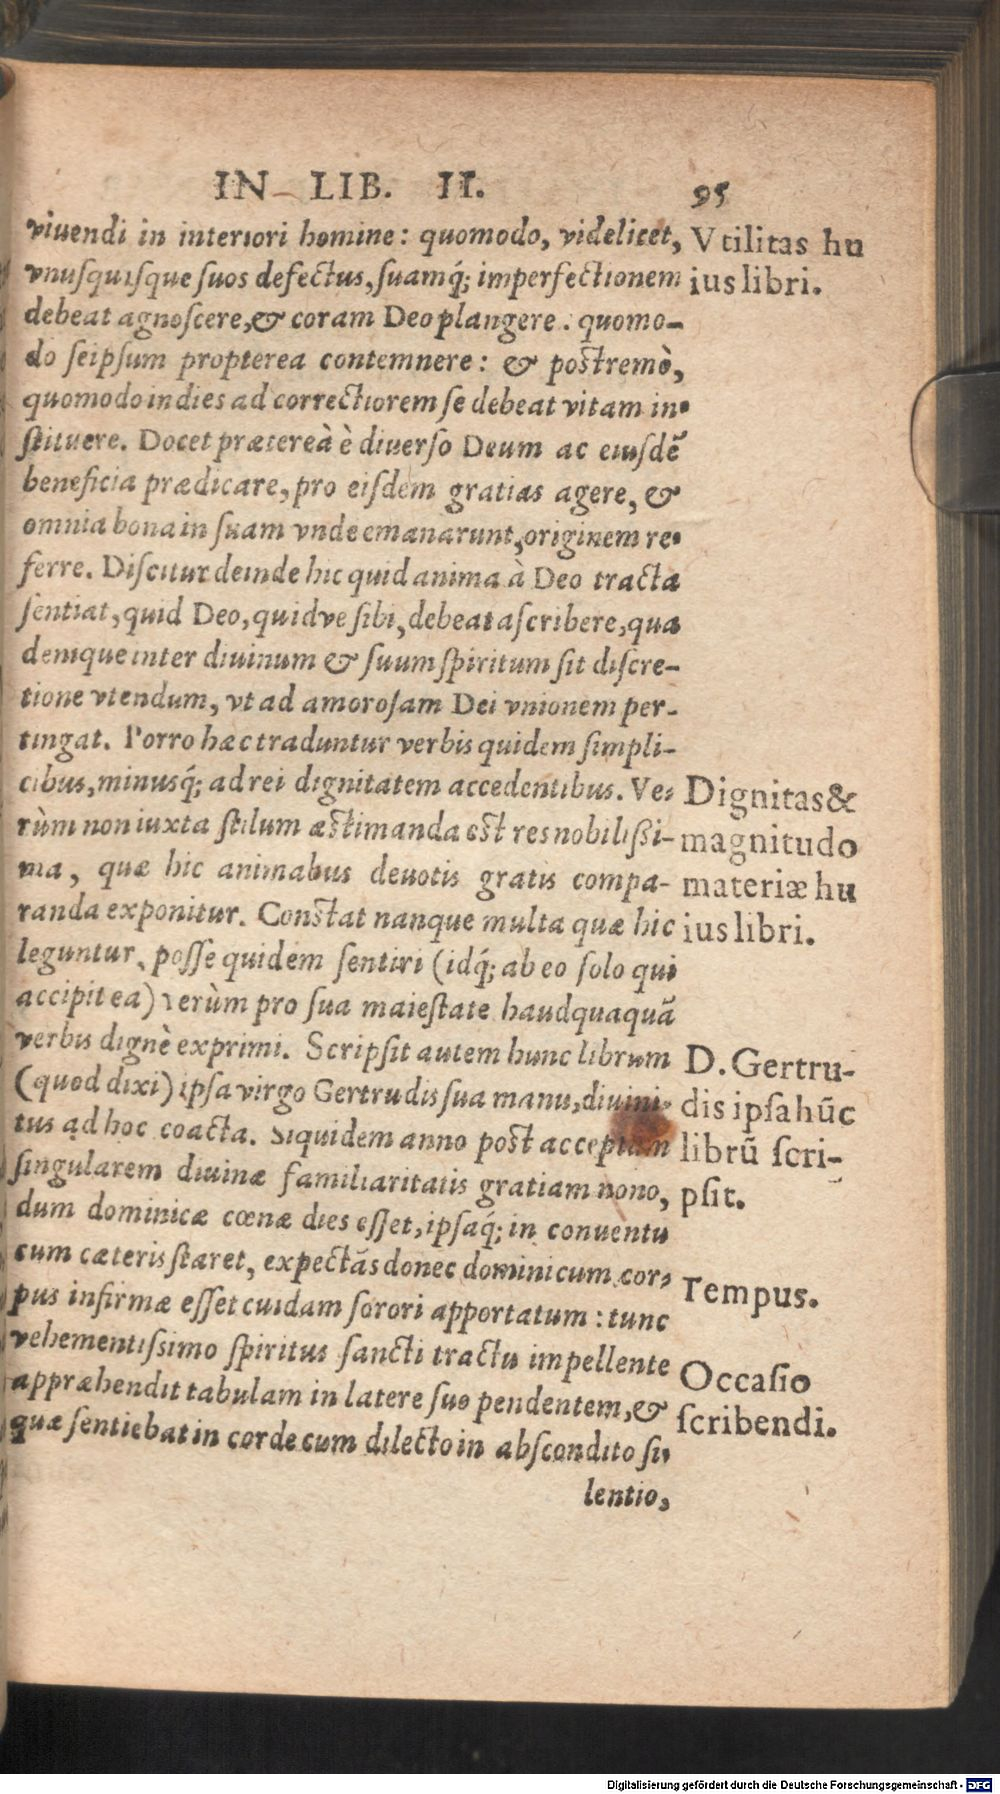 IN LIB. II. 95
viuendi in interiori homine: quomodo, videlicet,
vnusquisque suos defectus, suamq́; imperfectionem
debeat agnoscere, & coram Deo plangere. quomo-
do seipsum propterea contemnere: & postremò,
quomodo in dies ad correctiorem se debeat vitam in-
stituere. Docet prætereà è diuerso Deum ac eiusdẽ
beneficia prædicare, pro eisdem gratias agere, &
omnia bona in suam vnde emanarunt, originem re-
ferre. Discitur deinde hic quid anima à Deo tracta
sentiat, quid Deo, quidve sibi, debeat ascribere, qua
denique inter diuinum & suum spiritum sit discre-
tione vtendum, vt ad amorosam Dei vnionem per-
tingat. Porro hæc traduntur verbis quidem simpli-
cibus, minusq́; ad rei dignitatem accedentibus. Ve-
rùm non iuxta stilum æstimanda est res nobilißi-
ma, quæ hic animabus deuotis gratis compa-
randa exponitur. Constat nanque multa quæ hic
leguntur, posse quidem sentiri (idq́; ab eo solo qui
accipit ea) verùm pro sua maiestate haudquaquã
verbis dignè exprimi. Scripsit autem hunc librum
(quod dixi) ipsa virgo Gertrudis sua manu, diuini-
tus ad hoc coacta. Siquidem anno post acceptam
singularem diuinæ familiaritatis gratiam nono,
dum dominicæ cœnæ dies esset, ipsaq́; in conuentu
cum cæteris staret, expectãs donec dominicum cor-
pus infirmæ esset cuidam sorori apportatum: tunc
vehementissimo spiritus sancti tractu impellente
appræhendit tabulam in latere suo pendentem, &
quæ sentiebat in corde cum dilecto in abscondito si-
lentio,
Vtilitas hu
ius libri.
Dignitas &
magnitudo
materiæ hu
ius libri.
D. Gertru-
dis ipsa hũc
librũ scri-
psit.
Tempus.
Occasio
scribendi.
Digitalisierung gefördert durch die Deutsche Forschungsgemeinschaft - DFG